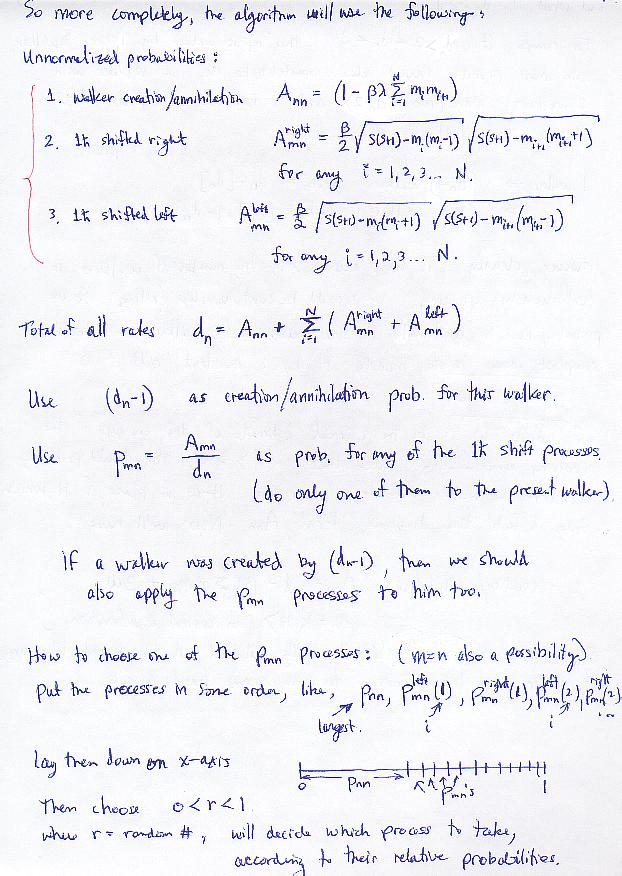 So more completely, the algorithm will use the following:
Unnormalized probabilities:
1. walker creation/annihilation   A_nn = (1 - βλ Σ_{i=1}^{N} m_i m_{i+1})
2. 1ħ shifted right   A_mn^right = β/2 √(S(S+1)-m_i(m_i-1)) √(S(S+1)-m_{i+1}(m_{i+1}+1))
for any i = 1,2,3... N.
3. 1ħ shifted left   A_mn^left = β/2 √(S(S+1)-m_i(m_i+1)) √(S(S+1)-m_{i+1}(m_{i+1}-1))
for any i = 1,2,3... N.
Total of all rates   d_n = A_nn + Σ_{i=1}^{N} (A_mn^right + A_mn^left)
Use (d_n-1) as creation/annihilation prob. for this walker.
Use P_mn = A_mn / d_n as prob. for any of the 1ħ shift processes.
(do only one of them to the present walker)
If a walker was created by (d_n-1), then we should
also apply the P_mn processes to him too.
How to choose one of the P_mn processes: (m=n also a possibility)
Put the processes in some order, like, P_nn, P_mn^left(1), P_mn^right(1), P_mn^left(2), P_mn^right(2)...
largest.   i   i
Lay then down on x-axis
0   P_nn   P_mn's   1
Then choose 0<r<1
where r = random #, will decide which process to take,
according to their relative probabilities.